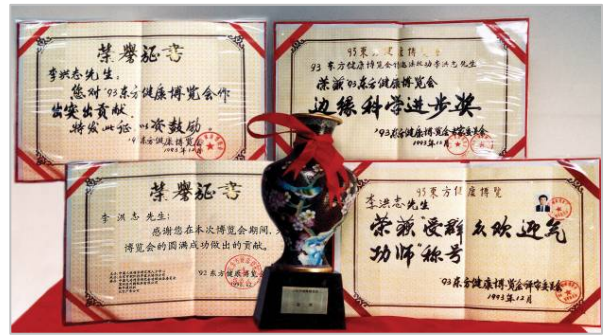 荣誉证书
李洪志先生：
您对'93东方健康博览会作
出突出贡献，
特发此证，以资鼓励。
东方健康博览会
1993年12月
93东方健康博览会
93东方健康博览会
李洪志先生
荣获'93东方健康博览会
边缘科学进步奖
'93东方健康博览会评审委员会
1993年12月
荣誉证书
李洪志先生：
感谢您在本次博览会期间，
博览会的圆满成功做出的贡献。
92东方健康博览会
93东方健康博览
李洪志先生
荣获"受群众欢迎气
功师"称号
'93东方健康博览会评审委员会
1993年12月